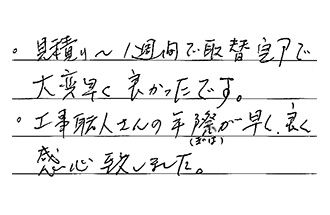 ・見積り〜1週間で取替完了で
大変早く良かったです。
・工事職人さんの手際が早く、良く
(ぎわ)
感心致しました。